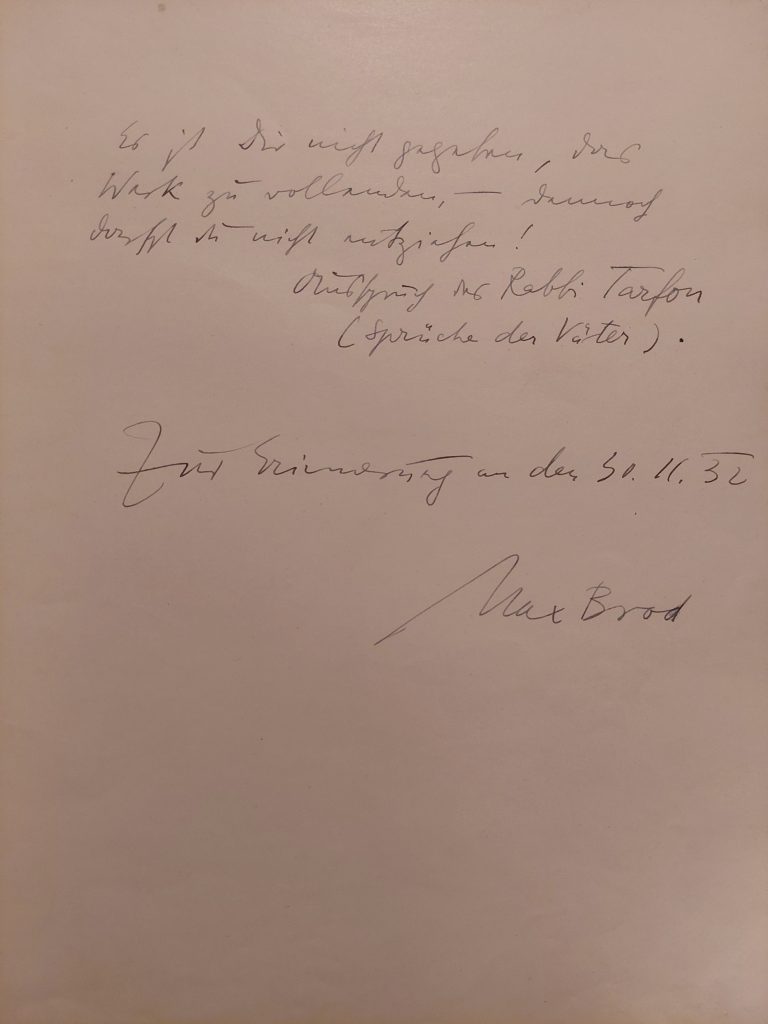 Es ist Dir nicht gegeben, das
Werk zu vollenden, — dennoch
darfst du nicht entziehen!
Ausspruch des Rabbi Tarfon
(Sprüche der Väter).
Zur Erinnerung an den 30. 11. 32
Max Brod